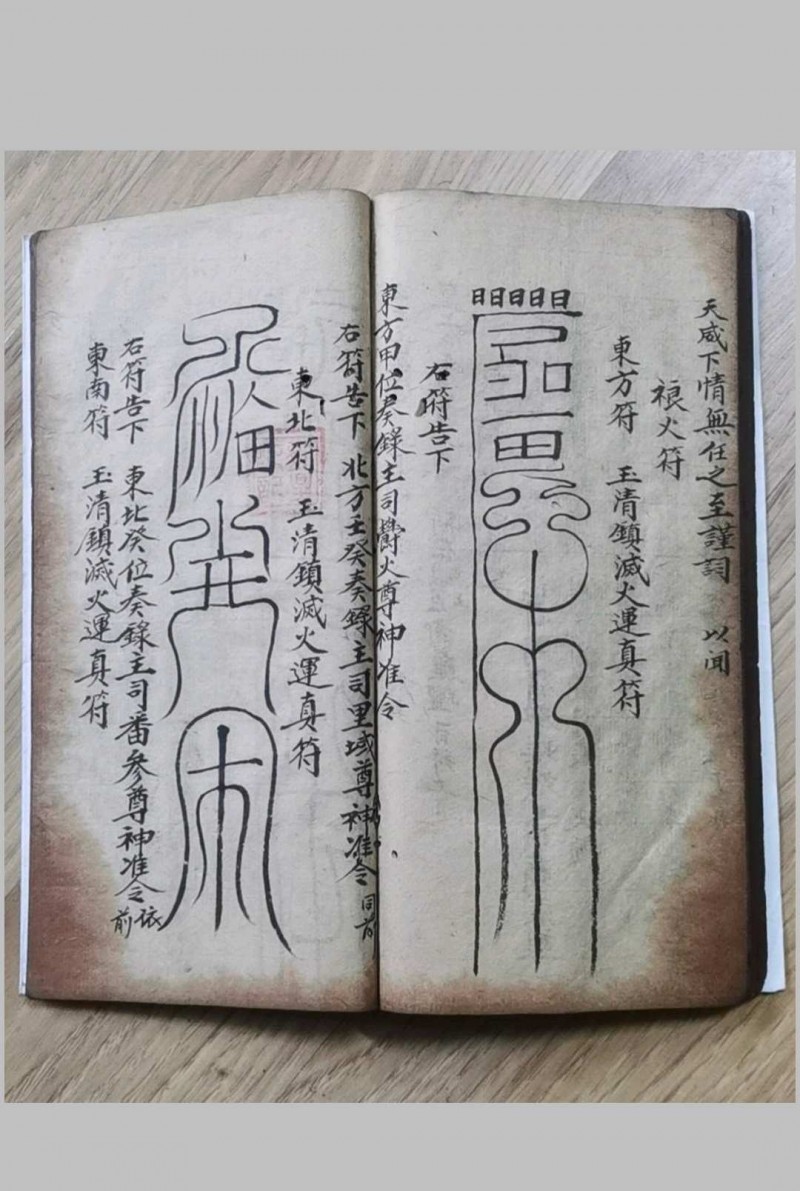 天威下情無任之至謹詞 以闻
禳火符
東方符 玉清鎮滅火運真符
日日日日日
右符告下
東方甲位奏錄主司欝火尊神准令
右符告下 北方壬癸奏錄主司里域尊神准令 同前
東北符 玉清鎮滅火運真符
右符告下 東北癸位奏錄主司番參尊神准令 依前
東南符 玉清鎮滅火運真符